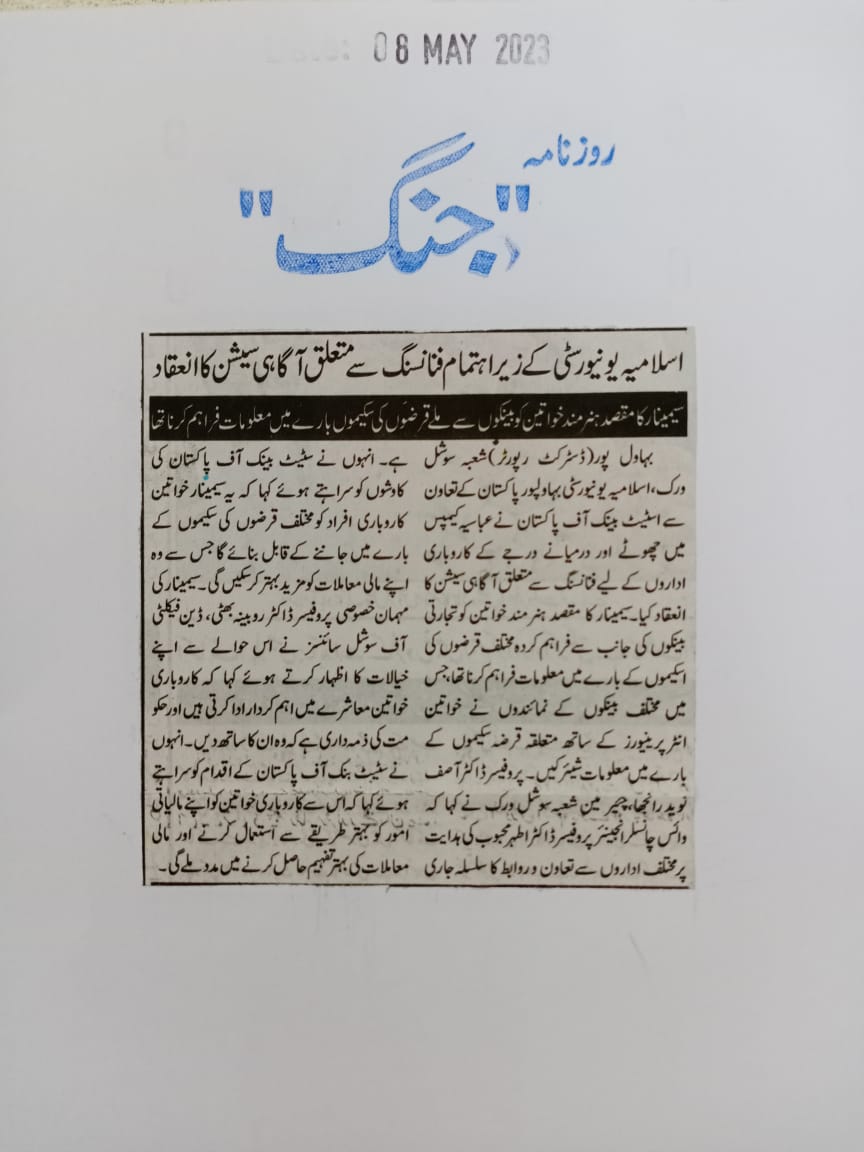 08 MAY 2023
روزنامہ
"جنگ"
اسلامیہ یونیورسٹی کے زیراہتمام فنانسنگ سے متعلق آگاہی سیشن کا انعقاد
سیمینار کا مقصد ہنرمند خواتین کو بینکوں سے ملے قرضوں کی سکیموں بارے میں معلومات فراہم کرنا تھا
بہاول پور(ڈسٹرکٹ رپورٹر)شعبہ سوشل
ورک،اسلامیہ یونیورسٹی بہاولپور پاکستان کے تعاون
سے اسٹیٹ بینک آف پاکستان نے عباسیہ کیمپس
میں چھوٹے اور درمیانے درجے کے کاروباری
اداروں کے لیے فنانسنگ سے متعلق آگاہی سیشن کا
انعقاد کیا۔سیمینار کا مقصد ہنرمند خواتین کو تجارتی
بینکوں کی جانب سے فراہم کردہ مختلف قرضوں کی
اسکیموں کے بارے میں معلومات فراہم کرنا تھا،جس
میں مختلف بینکوں کے نمائندوں نے خواتین
انٹرپرینیورز کے ساتھ متعلقہ قرضہ سکیموں کے
بارے میں معلومات شیئر کیں۔ پروفیسر ڈاکٹر آصف
نوید رانجھا، چیئرمین شعبہ سوشل ورک نے کہا کہ
وائس چانسلر انجینئر پروفیسر ڈاکٹر اطہر محبوب کی ہدایت
پر مختلف اداروں سے تعاون و روابط کا سلسلہ جاری
ہے۔ انہوں نے سٹیٹ بینک آف پاکستان کی
کاوشوں کو سراہتے ہوئے کہا کہ یہ سیمینار خواتین
کاروباری افراد کو مختلف قرضوں کی سکیموں کے
بارے میں جاننے کے قابل بنائے گا جس سے وہ
اپنے مالی معاملات کو مزید بہتر کرسکیں گی۔سیمینار کی
مہمان خصوصی پروفیسر ڈاکٹر روبینہ بھٹی، ڈین فیکلٹی
آف سوشل سائنسز نے اس حوالے سے اپنے
خیالات کا اظہار کرتے ہوئے کہا کہ کاروباری
خواتین معاشرے میں اہم کردار ادا کرتی ہیں اور حکو
مت کی ذمہ داری ہے کہ وہ ان کا ساتھ دیں۔ انہوں
نے سٹیٹ بنک آف پاکستان کے اقدام کو سراہتے
ہوئے کہا کہ اس سے کاروباری خواتین کو اپنے مالیاتی
امور کو بہتر طریقے سے استعمال کرنے اور مالی
معاملات کی بہتر تفہیم حاصل کرنے میں مدد ملے گی۔